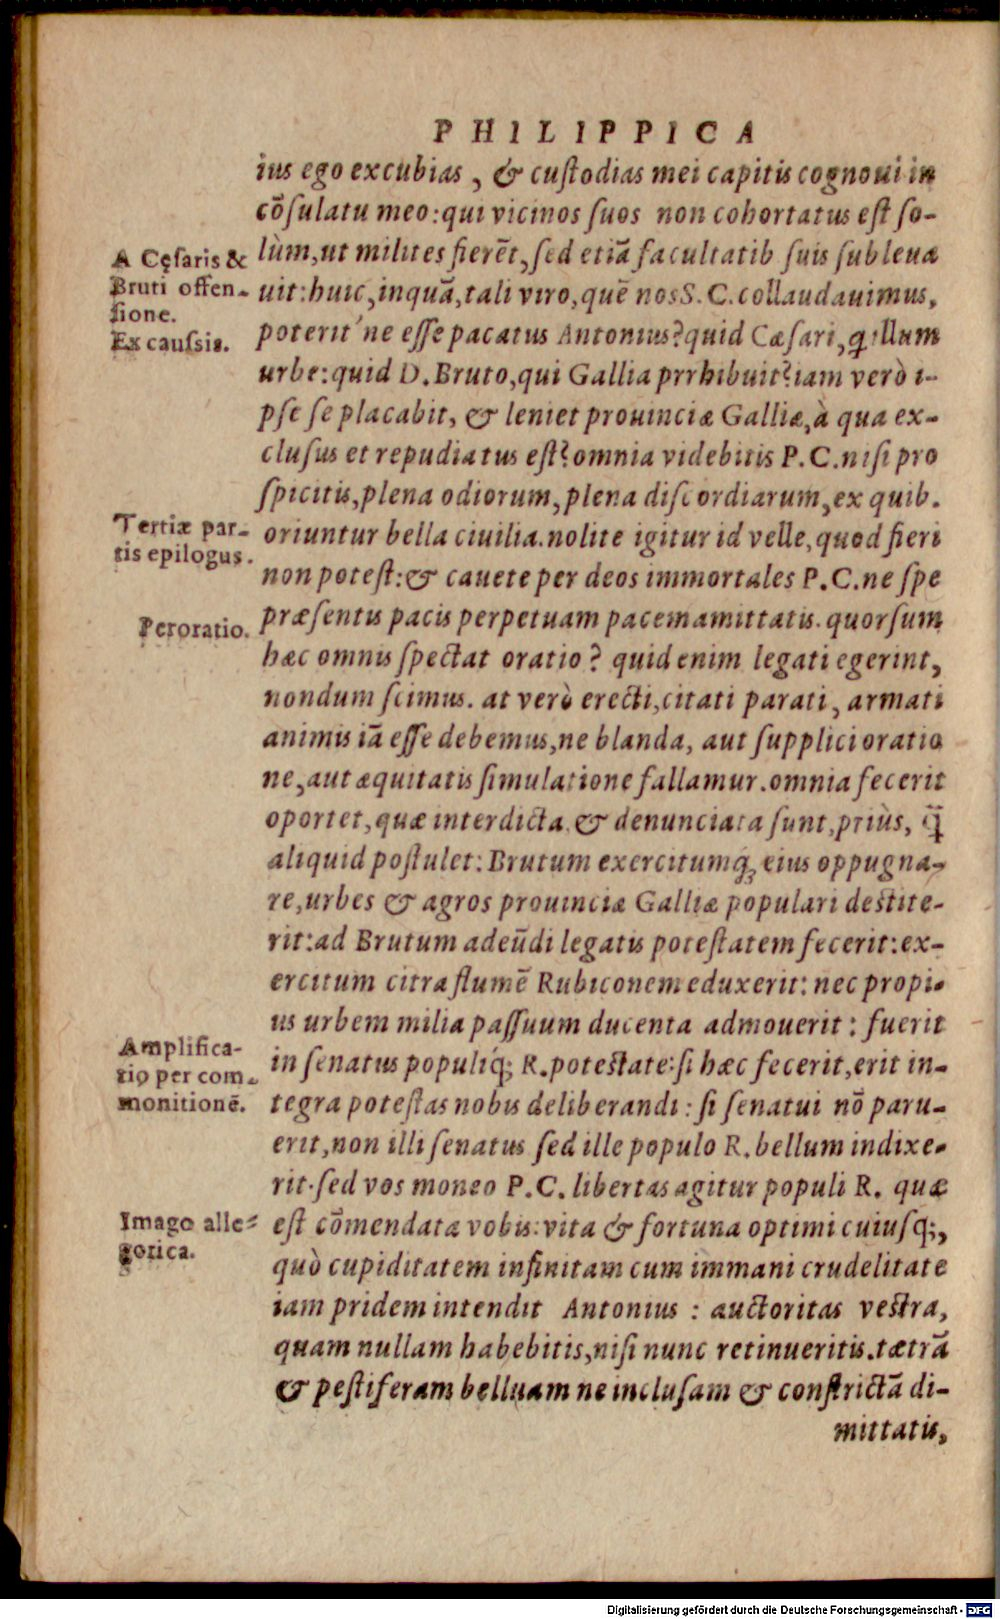 PHILIPPICA
ius ego excubias, & custodias mei capitis cognoui in
cōsulatu meo: qui vicinos suos non cohortatus est so-
lùm, ut milites fierēt, sed etiā facultatib suis subleua
uit: huic, inquā, tali viro, quē nos S. C. collaudauimus,
poterit ne esse pacatus Antonius? quid Cæsari, q illum
urbe: quid D. Bruto, qui Gallia prrhibuit? iam verò i-
pse se placabit, & leniet prouinciæ Galliæ, à qua ex-
clusus et repudiatus est? omnia videbitis P. C. nisi pro
spicitis, plena odiorum, plena discordiarum, ex quib.
oriuntur bella ciuilia. nolite igitur id velle, quod fieri
non potest: & cauete per deos immortales P. C. ne spe
præsentis pacis perpetuam pacem amittatis. quorsum
hæc omnis spectat oratio? quid enim legati egerint,
nondum scimus. at verò erecti, citati parati, armati
animis iā esse debemus, ne blanda, aut supplici oratio
ne, aut æquitatis simulatione fallamur. omnia fecerit
oportet, quæ interdicta & denunciata sunt, priùs, q̄
aliquid postulet: Brutum exercitumq́; eius oppugna-
re, urbes & agros prouinciæ Galliæ populari destite-
rit: ad Brutum adeūdi legatis potestatem fecerit: ex-
ercitum citra flumē Rubiconem eduxerit: nec propi-
us urbem milia passuum ducenta admouerit: fuerit
in senatus populiq́; R. potestate: si hæc fecerit, erit in-
tegra potestas nobis deliberandi: si senatui nō paru-
erit, non illi senatus sed ille populo R. bellum indixe-
rit. sed vos moneo P. C. libertas agitur populi R. quæ
est cōmendata vobis: vita & fortuna optimi cuiusq;,
quò cupiditatem infinitam cum immani crudelitate
iam pridem intendit Antonius: auctoritas vestra,
quam nullam habebitis, nisi nunc retinueritis. tætrā
& pestiferam belluam ne inclusam & constrictā di-
mittatis,
A Cęsaris &
Bruti offen-
sione.
Ex caussis.
Tertiæ par-
tis epilogus.
Peroratio.
Amplifica-
tio per com-
monitionē.
Imago alle-
gorica.
Digitalisierung gefördert durch die Deutsche Forschungsgemeinschaft - DFG